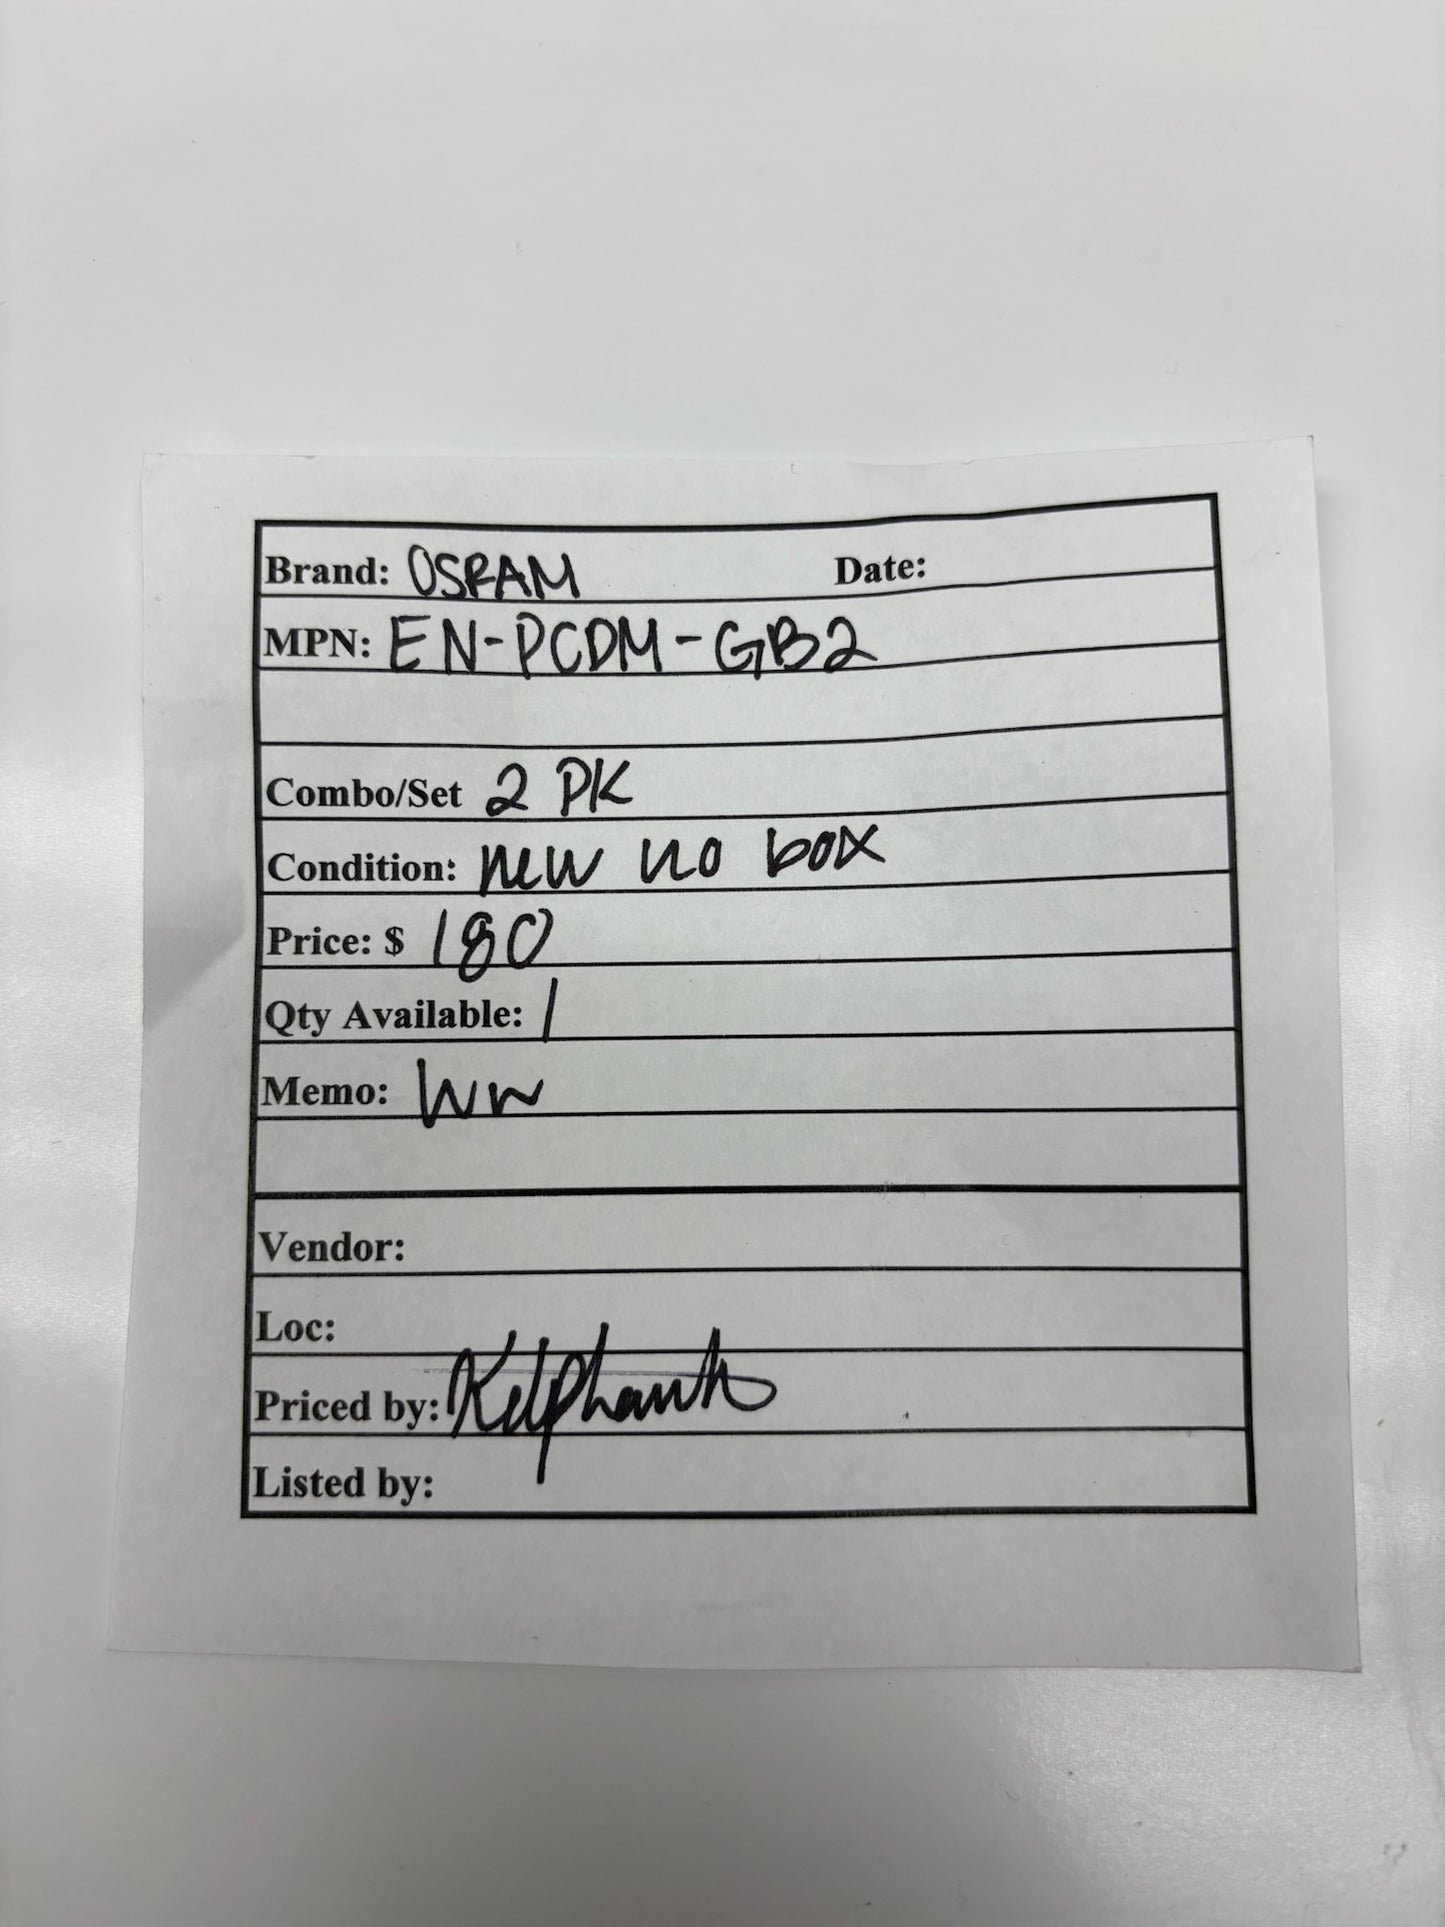 Brand: OSRAM Date:
MPN: EN-PCDM-GB2
Combo/Set 2 PK
Condition: new no box
Price: $ 180
Qty Available: 1
Memo: WW
Vendor:
Loc:
Priced by:
Listed by: